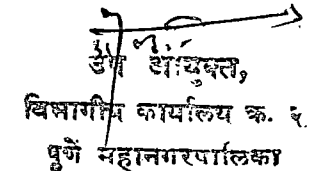 उप आयुक्त,
विभागीय कार्यालय क्र.
पुणें महानगरपालिका